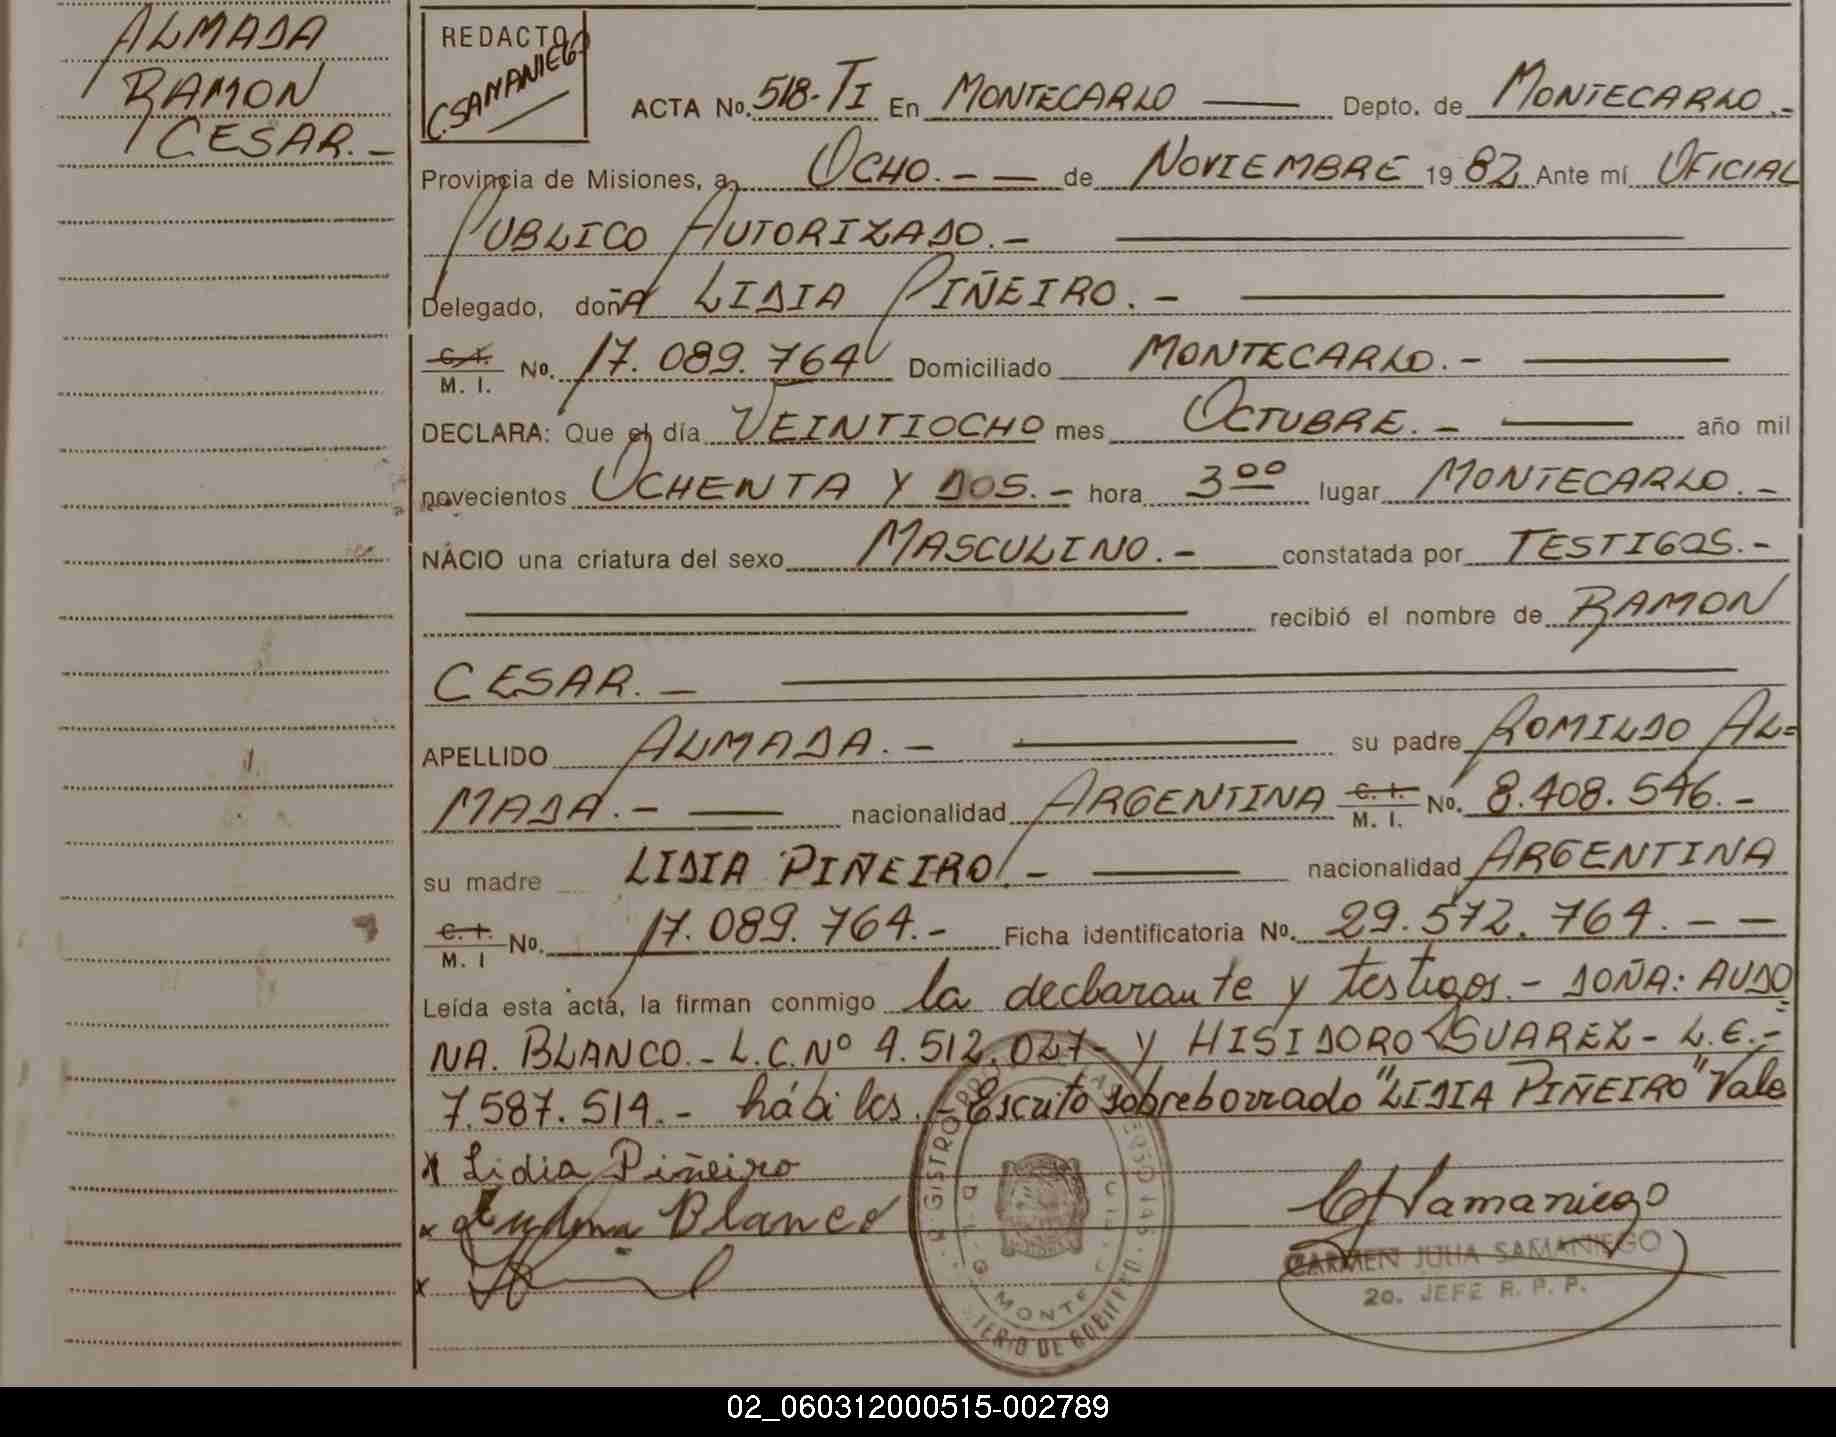 ALMADA
RAMON
CESAR.-
REDACTO
C. SAMANIEGO
ACTA No. 518-TI En MONTECARLO Depto. de MONTECARLO.-
Provincia de Misiones, a OCHO.-- de NOVIEMBRE 1982 Ante mí OFICIAL
PUBLICO AUTORIZADO.-
Delegado, doñA LIDIA PIÑEIRO.-
C. I. / M. I. No. 17.089.764 Domiciliado MONTECARLO.-
DECLARA: Que el día VEINTIOCHO mes OCTUBRE.- año mil
novecientos OCHENTA Y DOS.- hora 3⁰⁰ lugar MONTECARLO.-
NACIO una criatura del sexo MASCULINO.- constatada por TESTIGOS.-
recibió el nombre de RAMON
CESAR.-
APELLIDO ALMADA.- su padre ROMILDO AL=
MADA.- nacionalidad ARGENTINA C. I. / M. I. No. 8.408.546.-
su madre LIDIA PIÑEIRO.- nacionalidad ARGENTINA
C. I. / M. I No. 17.089.764.- Ficha identificatoria No. 29.572.764.--
Leída esta acta, la firman conmigo la declarante y testigos.- DOÑA: AUDO=
NA. BLANCO.- L.C.Nº 4.512.027- y HISIDORO SUAREZ- L.E.-
7.587.514.- hábiles.- Escrito sobreborrado "LIDIA PIÑEIRO" Vale
x Lidia Piñeiro
x Audona Blanco
x
CSamaniego
CARMEN JULIA SAMANIEGO
2o. JEFE R. P. P.
MINISTERIO DE GOBIERNO
MONTE
02_060312000515-002789